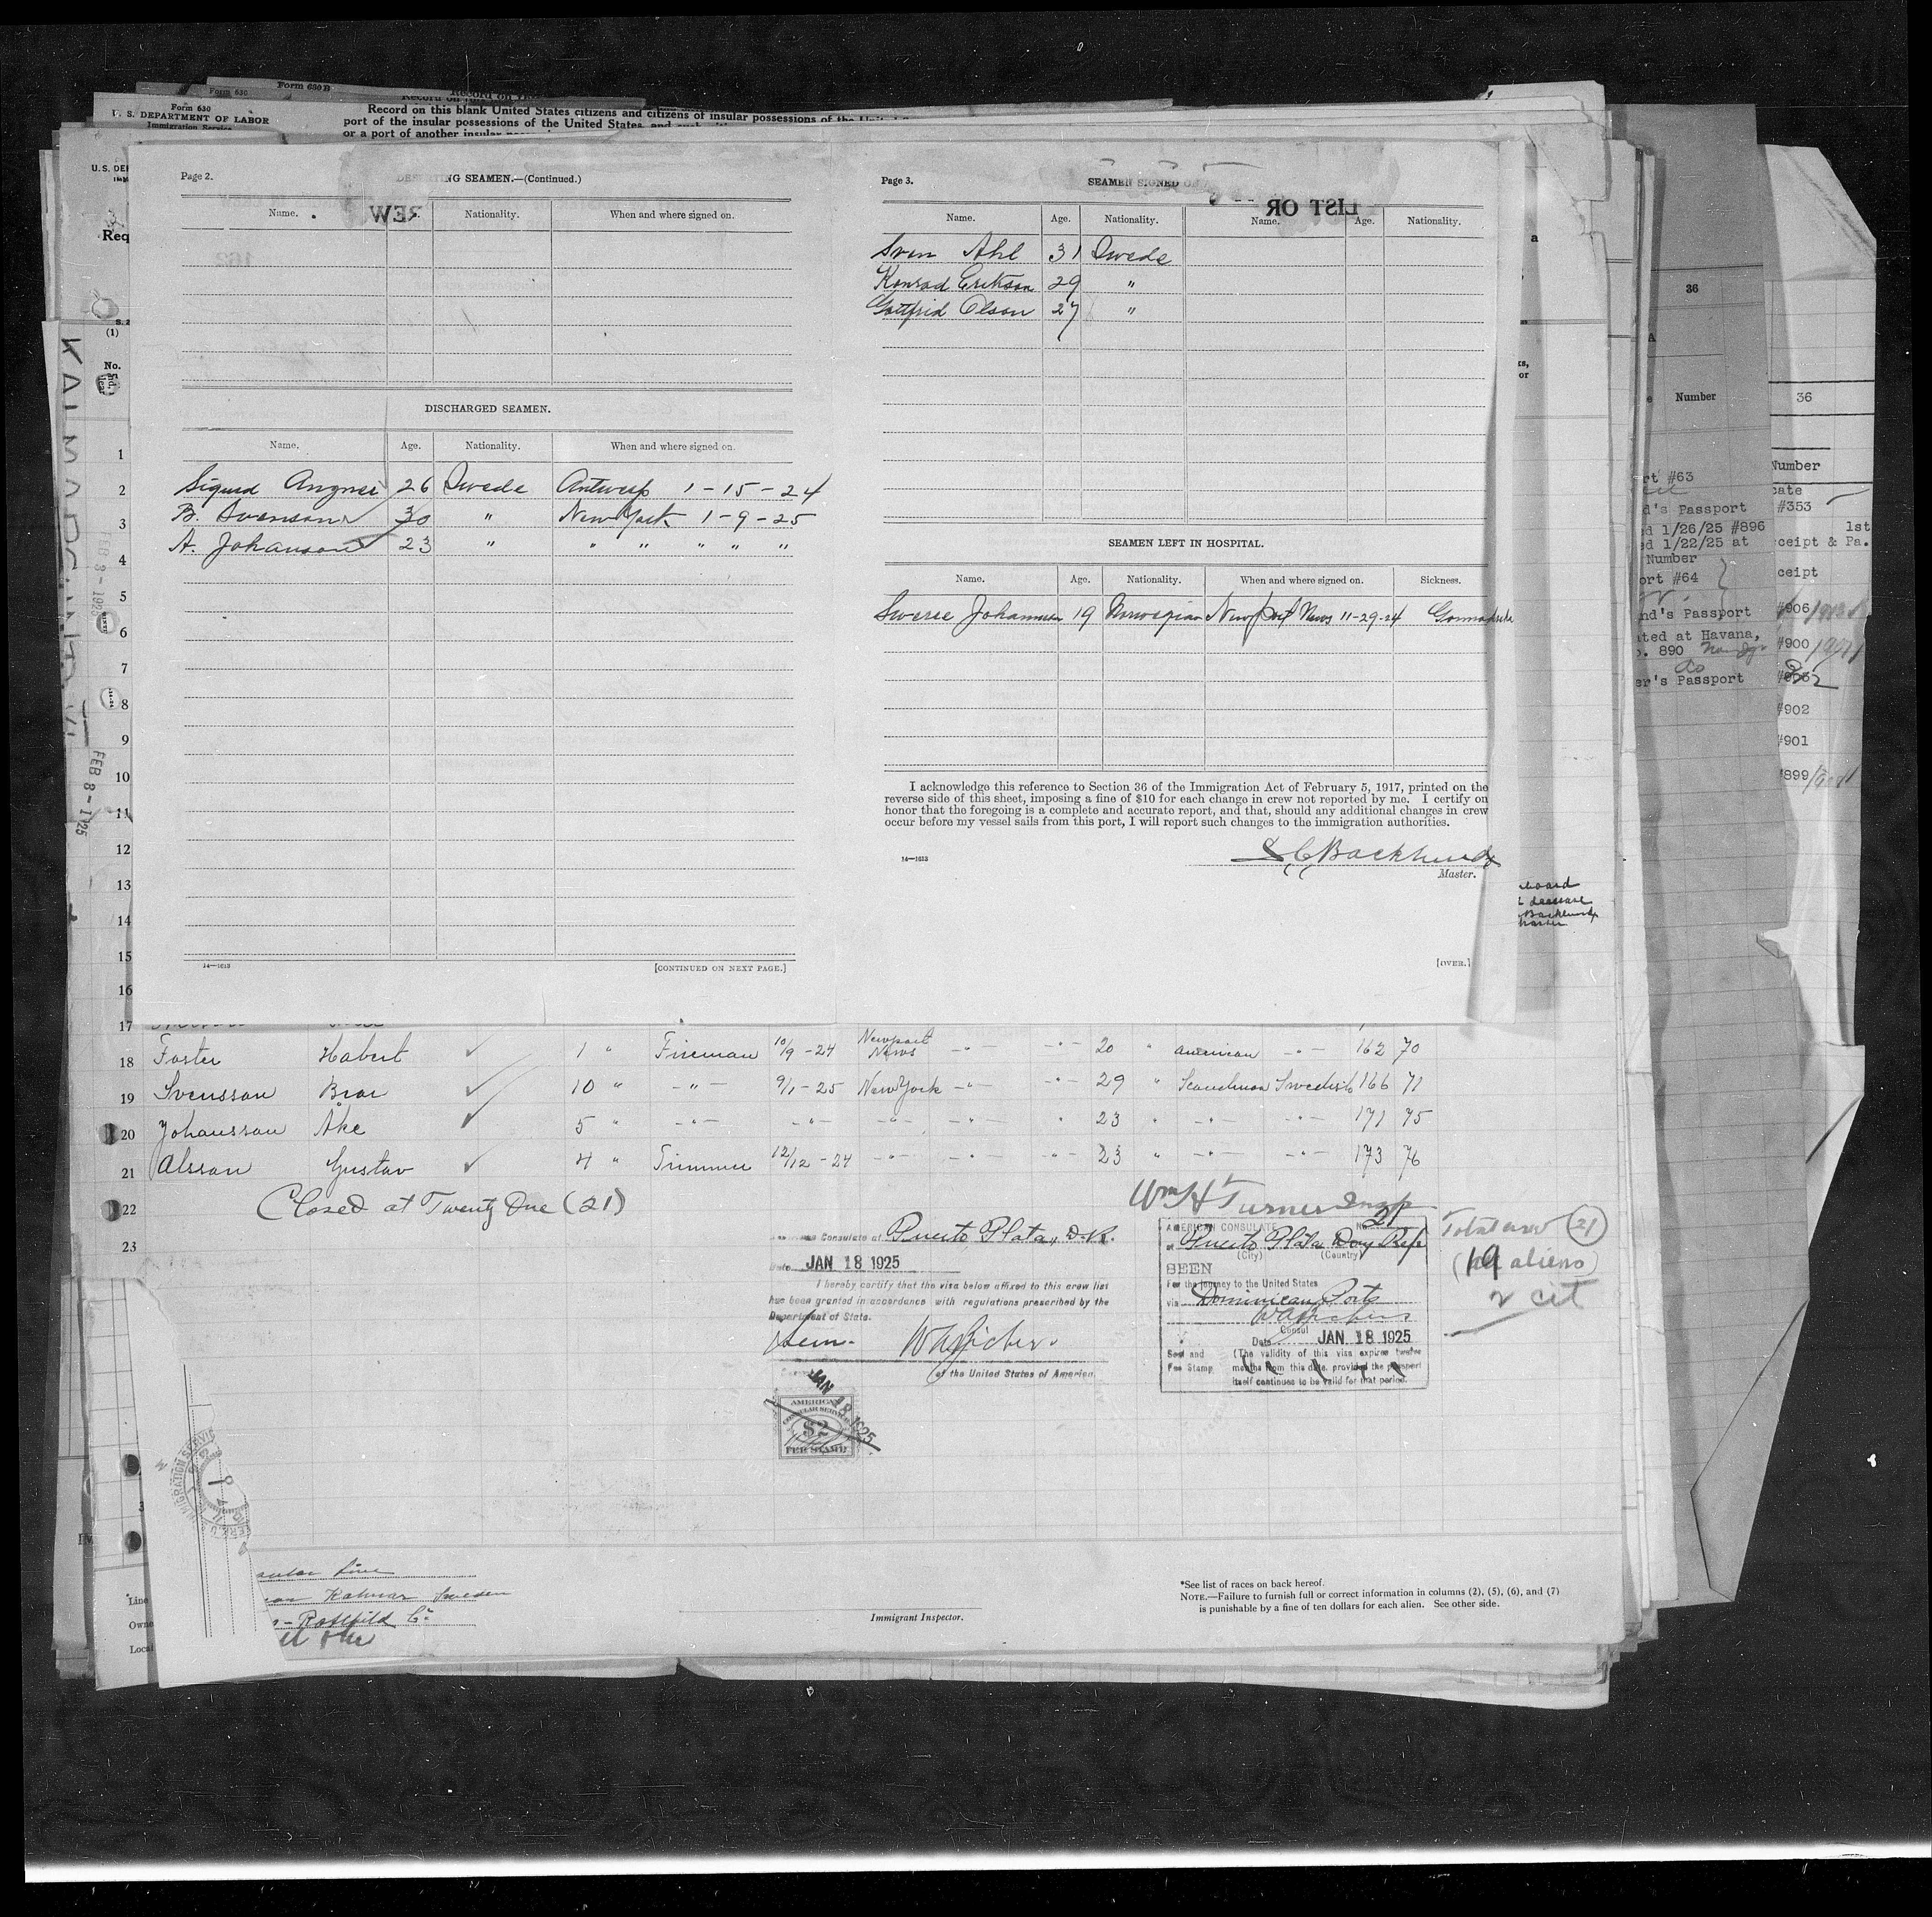 Form 630
Form 630 B
Form 630
U. S. DEPARTMENT OF LABOR
Immigration Service
Record on this blank United States citizens and citizens of insular possessions of the United
port of the insular possessions of the United States, and
or a port of another insular
U.S. DE
Req
(1)
No.
Page 2.
DEPARTING SEAMEN.—(Continued.)
Name.
Nationality.
When and where signed on.
DISCHARGED SEAMEN.
Name. Age. Nationality. When and where signed on.
Sigurd 26 Swede Antwerp 1-15-24
B. Svenson 30 " New York 1-9-25
A. Johanson 23 " " " " " "
14—1613
[CONTINUED ON NEXT PAGE.]
Page 3.
SEAMEN SIGNED O
LIST OR
Name. Age. Nationality. Name. Age. Nationality.
Sven Ahl 31 Swede
Konrad Erikson 29 "
Gottfrid Olson 27 "
SEAMEN LEFT IN HOSPITAL.
Name. Age. Nationality. When and where signed on. Sickness.
Johannsen 19 Norwegian Newport News 11-29-24
I acknowledge this reference to Section 36 of the Immigration Act of February 5, 1917, printed on the
reverse side of this sheet, imposing a fine of $10 for each change in crew not reported by me. I certify on
honor that the foregoing is a complete and accurate report, and that, should any additional changes in crew
occur before my vessel sails from this port, I will report such changes to the immigration authorities.
14—1613
Master.
[OVER.]
1
2
3
4
5
6
7
8
9
10
11
12
13
14
15
16
17
FEB 8-1925
FEB 8-1925
36
Number
36
Number
rt #63
d's Passport
ed 1/26/25 #896
ed 1/22/25 at
Number
ort #64
nd's Passport
ated at Havana,
. 890
do
er's Passport
cate
#353
1st
ceipt & Pa.
ceipt
#906
#900
#902
#901
#899
18 Foster Habert ✓ 1 " Fireman 10/9-24 Newport News -"- -"- 20 " American -"- 162 70
19 Svensson Bror ✓ 10 " -"- 9/1-25 New York -"- -"- 29 " Scandinav Swedish 166 71
20 Johansson Åke ✓ 5 " -"- -"- -"- -"- " 23 " -"- -"- 171 75
21 Olsson Gustav ✓ 4 " Trimmer 12/12-24 -"- -"- -"- 23 " -"- -"- 173 76
22 Closed at Twenty One (21)
23
Wm H Turner Insp
Total crew (21)
(19 aliens)
2 cit
Consulate at Puerto Plata, D.R.
Date JAN 18 1925
I hereby certify that the visa below affixed to this crew list
has been granted in accordance with regulations prescribed by the
Department of State.
of the United States of America
JAN 18 1925
AMERICAN
CONSULAR SERVICE
$2
FEE STAMP
AMERICAN CONSULATE No. 21
at Puerto Plata Dom Rep
(City) (Country)
SEEN
For the journey to the United States
via Dominican Ports
Consul
Date JAN 18 1925
Seal and
Fee Stamp
(The validity of this visa expires twelve
months from this date, provided the passport
itself continues to be valid for that period.
IMMIGRATION SERVICE
Line
Kalmar Sweden
Owne
Local
Immigrant Inspector.
*See list of races on back hereof.
NOTE.—Failure to furnish full or correct information in columns (2), (5), (6), and (7)
is punishable by a fine of ten dollars for each alien. See other side.